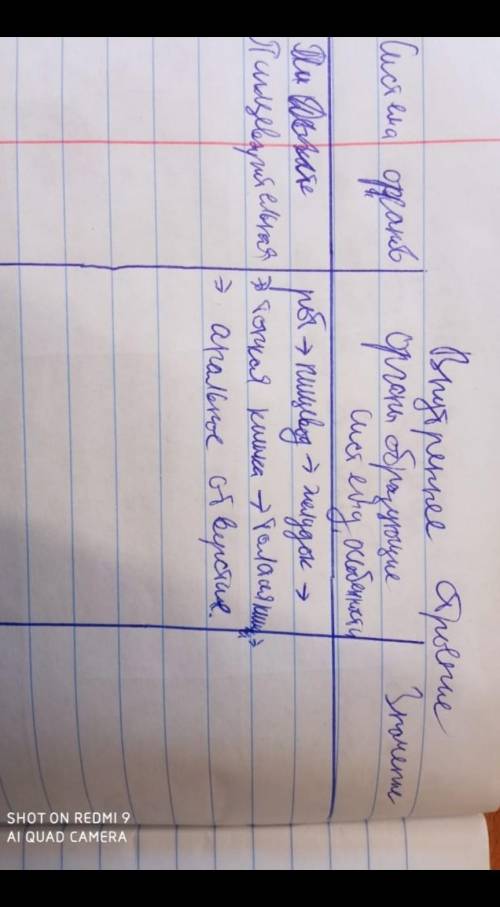 Внутреннее строение
Система органов
Органы образующие
систему, особенности
Значение
Пищеварительная
рот → пищевод → желудок →
→ тонкая кишка → толстая киш →
→ анальное отверстие.
SHOT ON REDMI 9
AI QUAD CAMERA